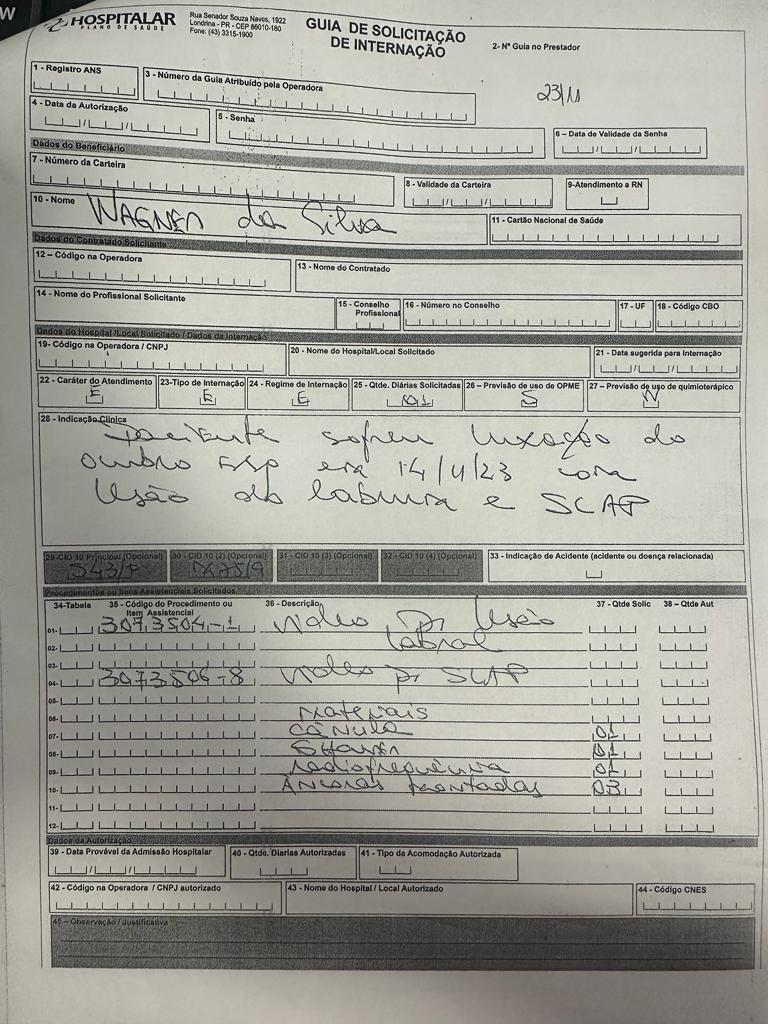 W
HOSPITALAR
PLANO DE SAÚDE
Rua Senador Souza Naves, 1922
Londrina - PR - CEP 86010-160
Fone: (43) 3315-1900
GUIA DE SOLICITAÇÃO
DE INTERNAÇÃO
2- Nº Guia no Prestador
23/11
1 - Registro ANS
3 - Número da Guia Atribuído pela Operadora
4 - Data da Autorização
5 - Senha
6 – Data de Validade da Senha
Dados do Beneficiário
7 - Número da Carteira
8 - Validade da Carteira
9-Atendimento a RN
10 - Nome
WAGNER da Silva
11 - Cartão Nacional de Saúde
Dados do Contratado Solicitante
12 – Código na Operadora
13 - Nome do Contratado
14 - Nome do Profissional Solicitante
15 - Conselho Profissional
16 - Número no Conselho
17 - UF
18 - Código CBO
Dados do Hospital /Local Solicitado / Dados da Internação
19- Código na Operadora / CNPJ
20 - Nome do Hospital/Local Solicitado
21 - Data sugerida para Internação
22 - Caráter do Atendimento
E
23-Tipo de Internação
E
24 - Regime de Internação
E
25 - Qtde. Diárias Solicitadas
01
26 – Previsão de uso de OPME
S
27 – Previsão de uso de quimioterápico
N
28 - Indicação Clínica
Paciente sofreu luxação do
ombro esp em 14/11/23 com
lesão do labrum e SLAP
29-CID 10 Principal (Opcional)
S43/
30 - CID 10 (2) (Opcional)
31 - CID 10 (3) (Opcional)
32 - CID 10 (4) (Opcional)
33 - Indicação de Acidente (acidente ou doença relacionada)
Procedimentos ou Itens Assistenciais Solicitados
34-Tabela
35 - Código do Procedimento ou Item Assistencial
36 - Descrição
37 - Qtde Solic
38 – Qtde Aut
01- 3073504-1 Video p/ lesão
02- labral
03-
04- 3073506-8 Video p/ SLAP
05-
06- Materiais
07- Cânula 01
08- Shaver 01
09- Radiofrequência 01
10- Âncoras montadas 03
11-
12-
Dados da Autorização
39 - Data Provável da Admissão Hospitalar
40 - Qtde. Diarias Autorizadas
41 - Tipo da Acomodação Autorizada
42 - Código na Operadora / CNPJ autorizado
43 - Nome do Hospital / Local Autorizado
44 - Código CNES
45 – Observação / Justificativa